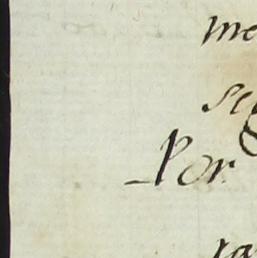 me
se
Por
ra